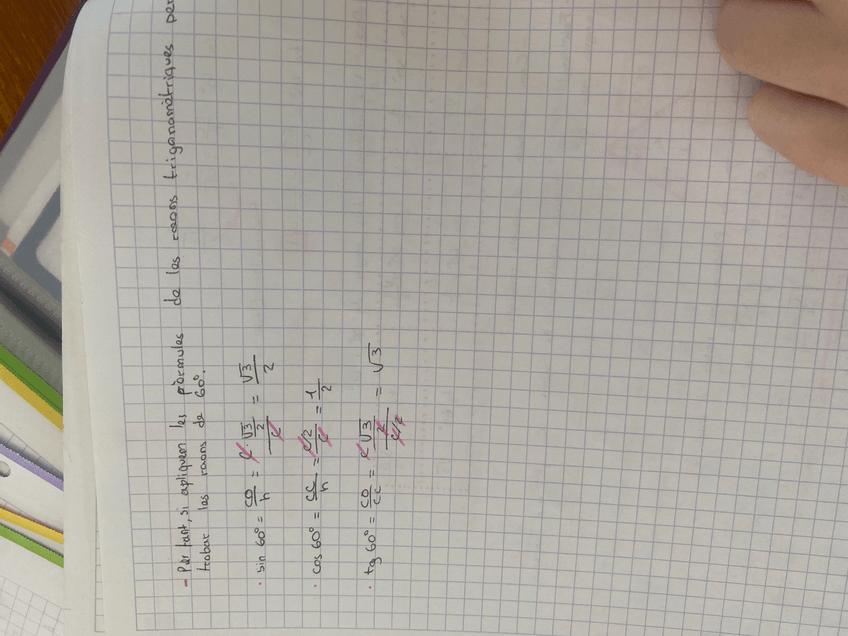 - Per tant, si apliquem les fòrmules de les raons trigonomètriques per
trobar les raons de 60º.
· sin 60º = CO/h = (l · √3/2)/l = √3/2
· cos 60º = CC/h = (l/2)/l = 1/2
· tg 60º = CO/CC = (l √3/2)/(l/2) = √3